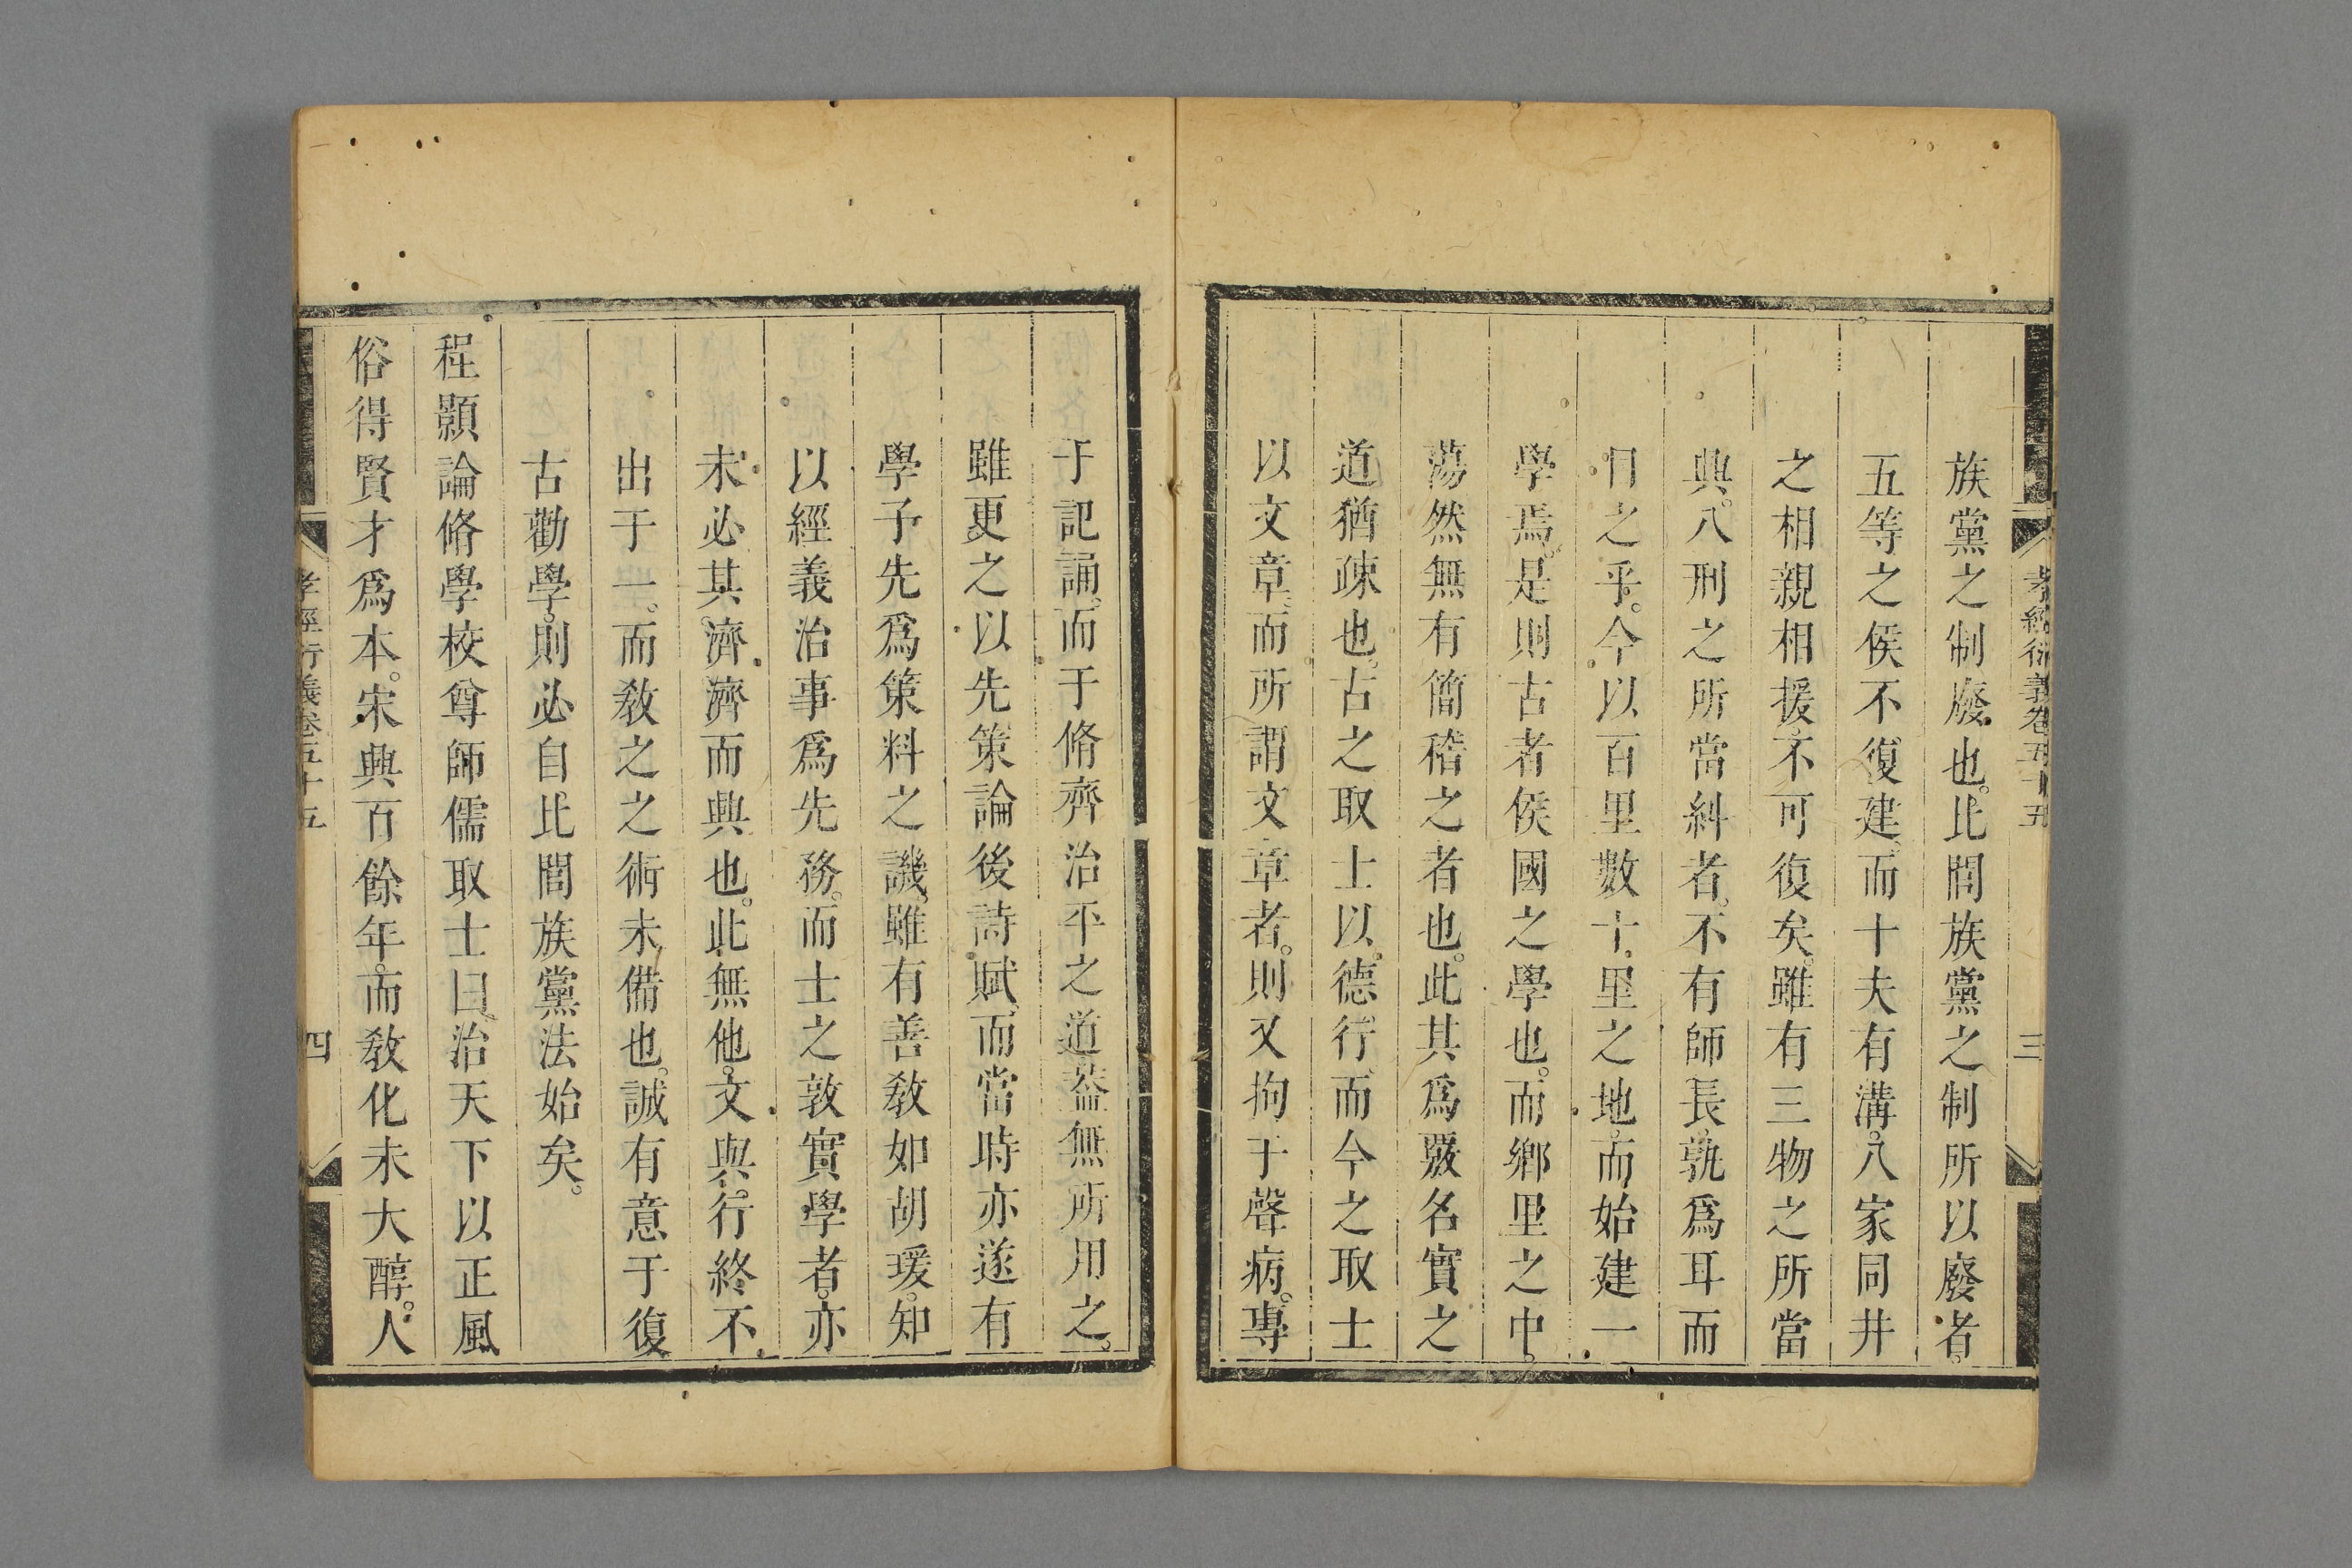 孝經衍義卷五十五
三
族黨之制廢也。比閭族黨之制所以廢者。
五等之侯不復建。而十夫有溝。八家同井
之相親相援。不可復矣。雖有三物之所當
興。八刑之所當糾者。不有師長。孰爲耳而
目之乎。今以百里數十里之地。而始建一
學焉。是則古者侯國之學也。而鄉里之中。
蕩然無有簡稽之者也。此其爲覈名實之
道猶疎也。古之取士以德。行。而今之取士
以文章。而所謂文章者。則又拘于聲病。專
于記誦。而于脩齊治平之道葢無所用之。
雖更之以先策論後詩賦。而當時亦遂有
學子先爲策料之譏。雖有善敎如胡瑗。知
以經義治事爲先務。而士之敦實學者。亦
未必其。濟濟而興也。此無他。文與。行終不
出于一。而敎之之術未備也。誠有意于復
古勸學。則必自比閭族黨法始矣。
程顥論脩學校尊師儒取士曰。治天下以正風
俗得賢才爲本。宋興百餘年。而敎化未大醇。人
孝經衍義卷五十五
四